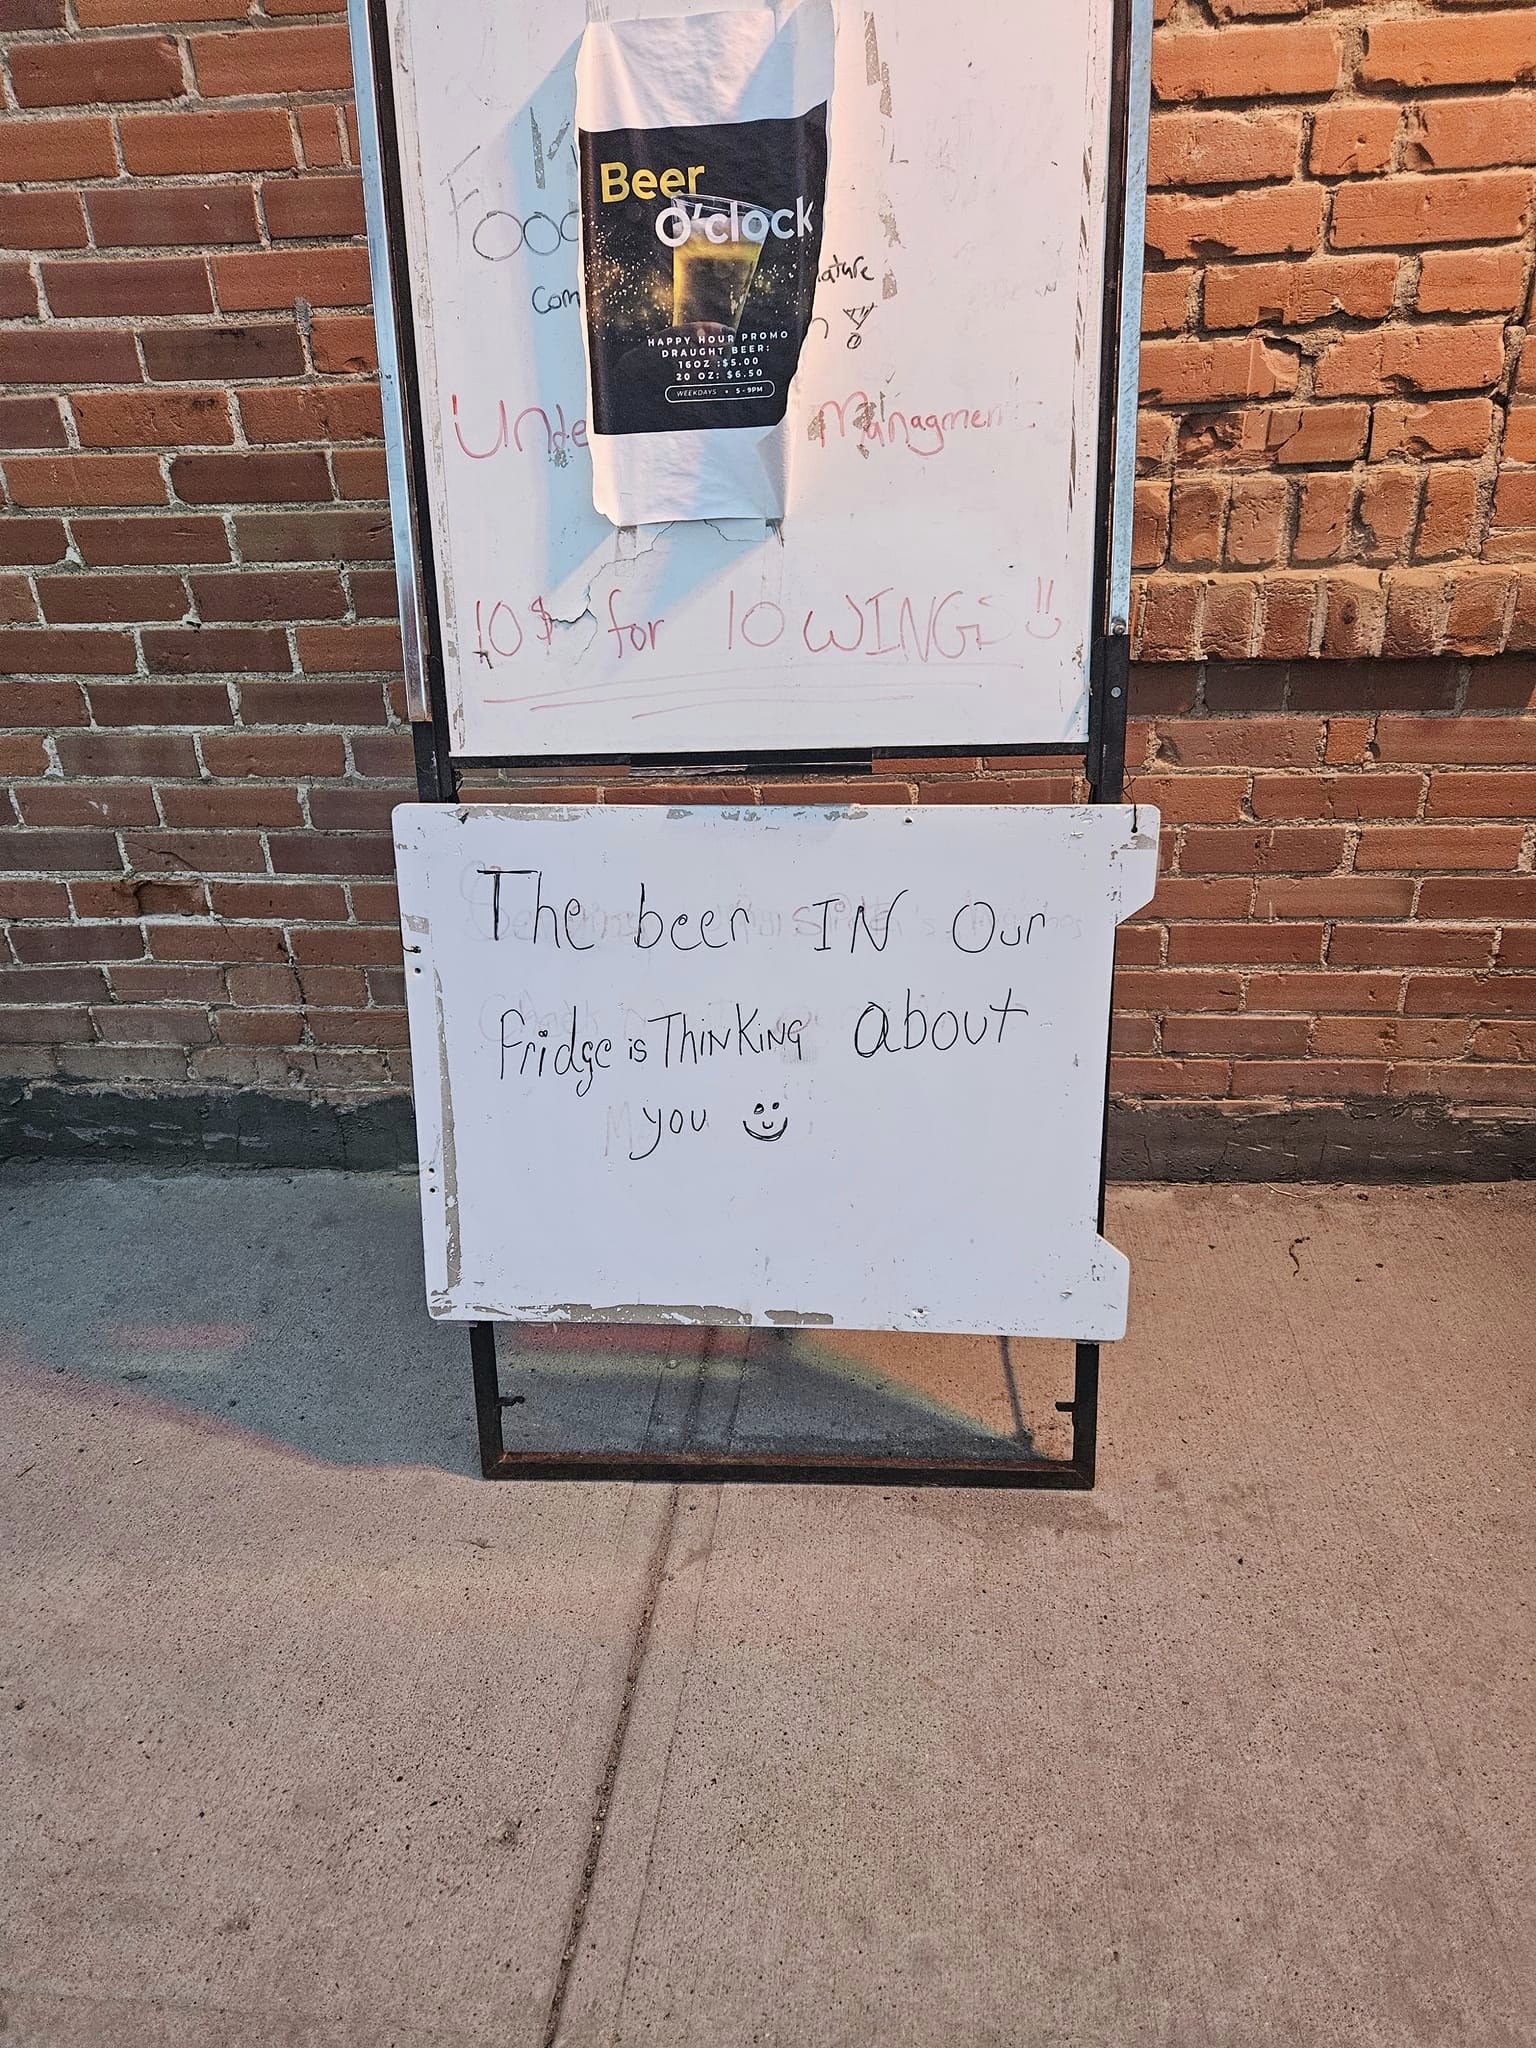 Beer
O'clock
HAPPY HOUR PROMO
DRAUGHT BEER:
16OZ :$5.00
20 OZ: $6.50
WEEKDAYS • 5 - 9PM
Food
Com
ature
Unde Managment
10$ for 10 WINGS !!
The beer IN Our
fridge is THINKING about
you